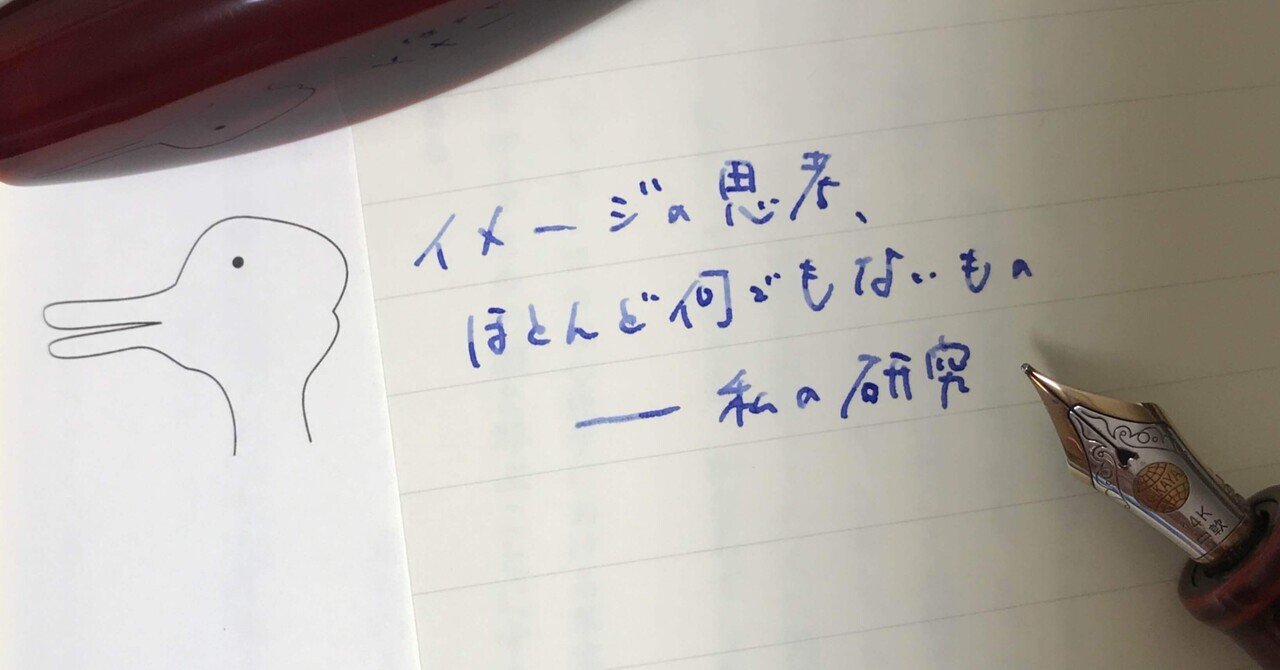 イメージの思考、
ほとんど何でもないもの
── 私の研究
14K